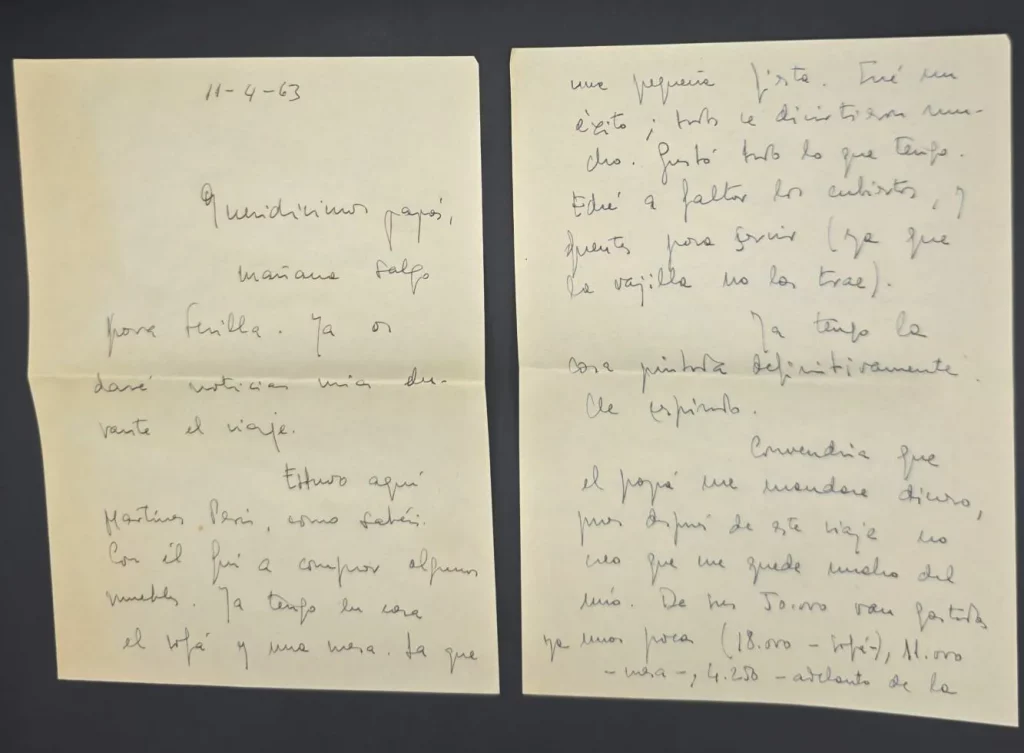 11-4-63
Queridísimos papás,
mañana salgo
para Sevilla. Ya os
daré noticias mías du-
rante el viaje.
Estuvo aquí
Martínez Peris, como sabéis.
Con él fui a comprar algunos
muebles. Ya tengo en casa
el sofá y una mesa. La que
una pequeña fiesta. Fué un
éxito; todos se divirtieron mu-
cho. Gustó todo lo que tengo.
Eché a faltar los cubiertos, y
fuentes para servir (ya que
la vajilla no las trae).
Ya tengo la
casa pintada definitivamente.
Convendría que
el papá me mandara dinero,
pues después de este viaje no
creo que me quede mucho del
mío. De sus 50.000 van gastadas
ya unas pocas (18.000 - sofá-), 11.000
- mesa -, 4.250 - adelanto de la